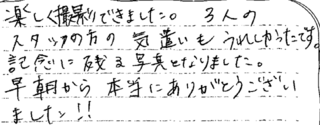 楽しく撮影できました。 3人の
スタッフの方の 気遣いも うれしかったです。
記念に残る写真となりました。
早朝から 本当にありがとうござい
ました!!